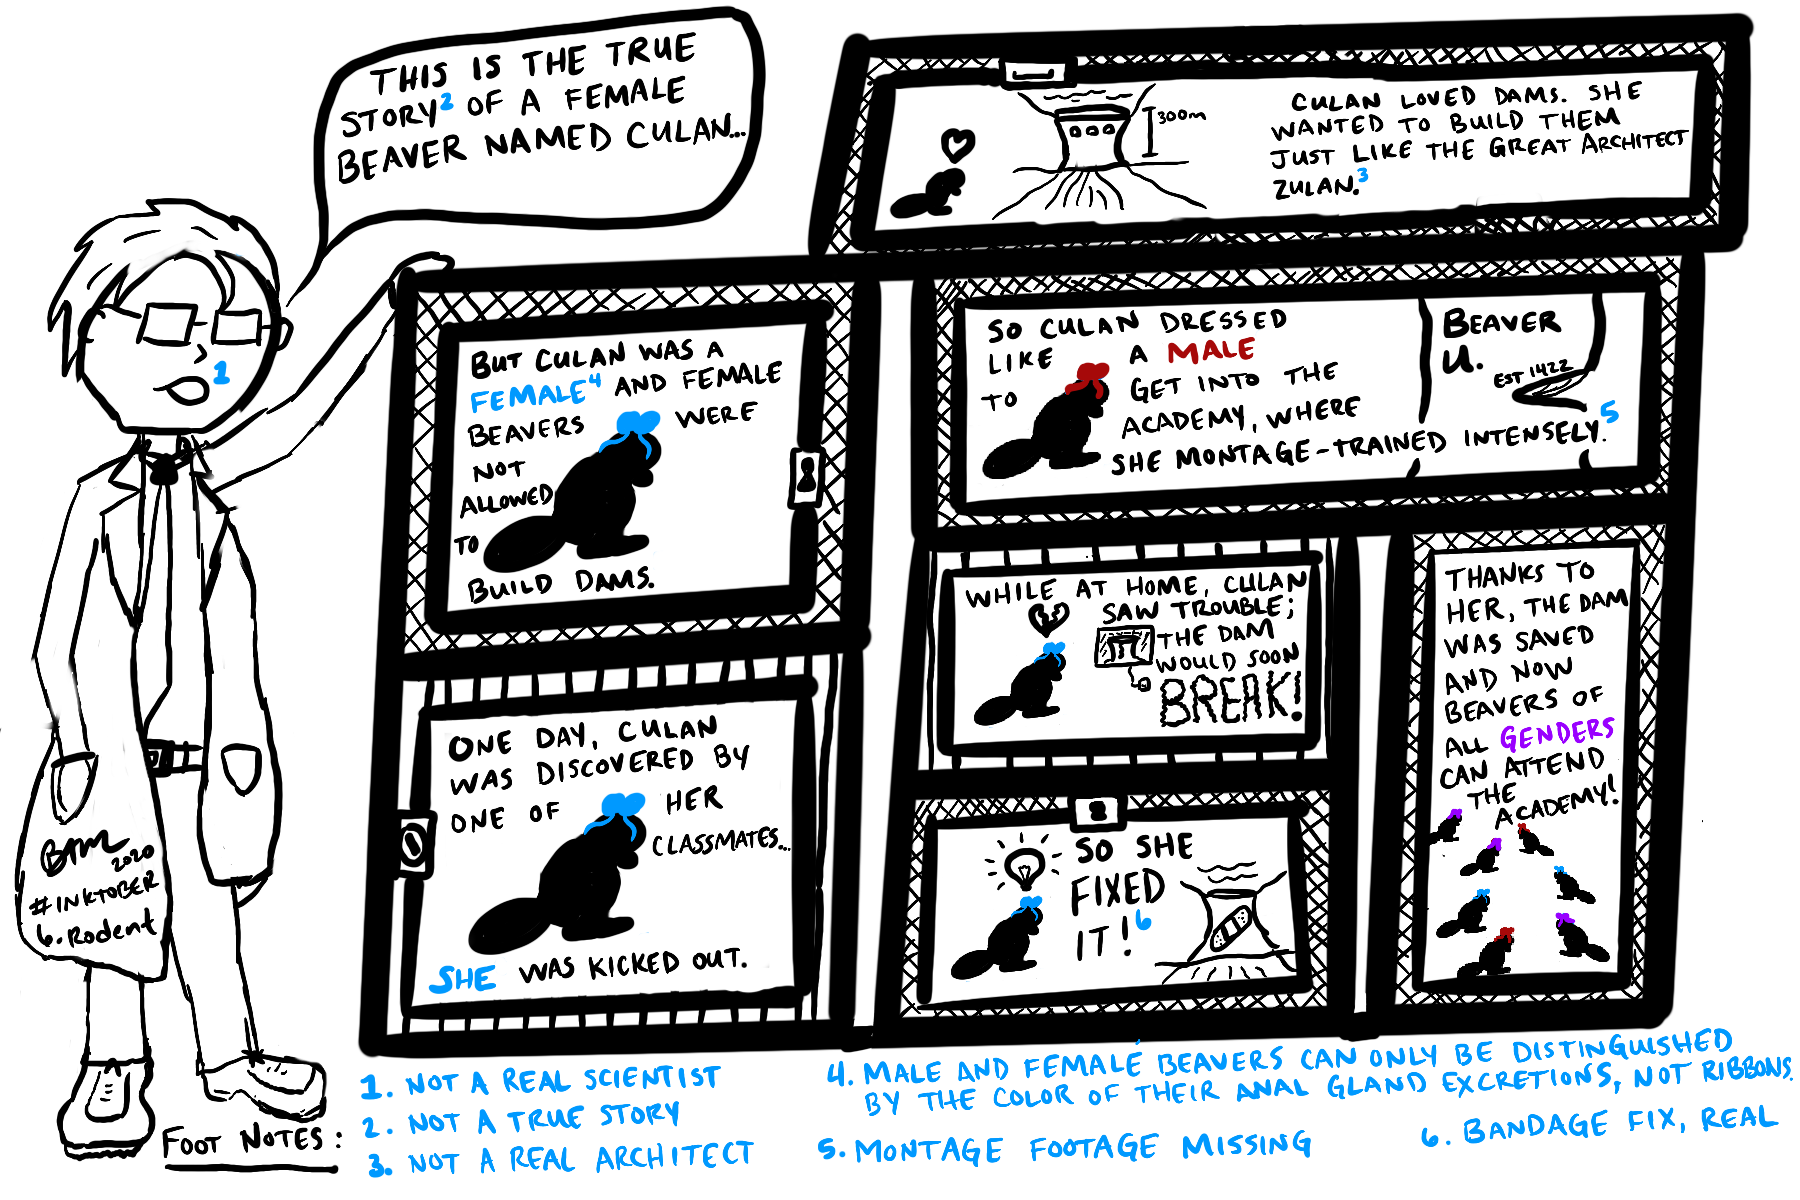 THIS IS THE TRUE
STORY2 OF A FEMALE
BEAVER NAMED CULAN...
1
300m
CULAN LOVED DAMS. SHE
WANTED TO BUILD THEM
JUST LIKE THE GREAT ARCHITECT
ZULAN.3
BUT CULAN WAS A
FEMALE4 AND FEMALE
BEAVERS WERE
NOT
ALLOWED
TO
BUILD DAMS.
SO CULAN DRESSED
LIKE A MALE
TO GET INTO THE
ACADEMY, WHERE
SHE MONTAGE-TRAINED INTENSELY.5
BEAVER
U.
EST 1422
ONE DAY, CULAN
WAS DISCOVERED BY
ONE OF HER
CLASSMATES...
SHE WAS KICKED OUT.
WHILE AT HOME, CULAN
SAW TROUBLE;
THE DAM
WOULD SOON
BREAK!
SO SHE
FIXED
IT!6
THANKS TO
HER, THE DAM
WAS SAVED
AND NOW
BEAVERS OF
ALL GENDERS
CAN ATTEND
THE
ACADEMY!
BAM
2020
#INKTOBER
6. Rodent
FOOT NOTES:
1. NOT A REAL SCIENTIST
2. NOT A TRUE STORY
3. NOT A REAL ARCHITECT
4. MALE AND FEMALE BEAVERS CAN ONLY BE DISTINGUISHED
BY THE COLOR OF THEIR ANAL GLAND EXCRETIONS, NOT RIBBONS.
5. MONTAGE FOOTAGE MISSING
6. BANDAGE FIX, REAL